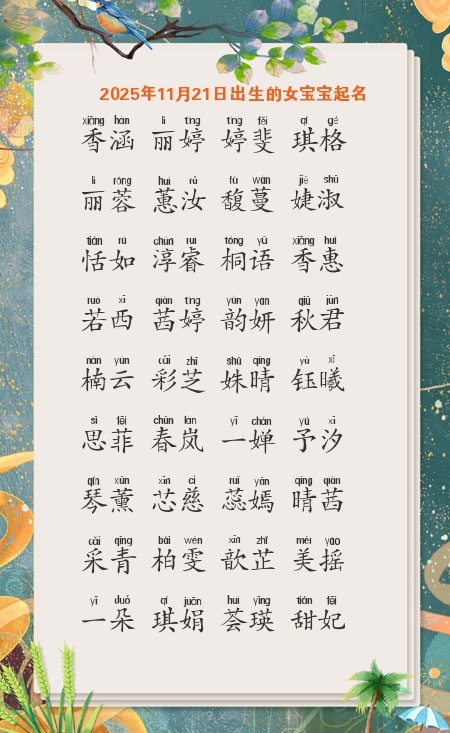 2025年11月21日出生的女宝宝起名
xiāng hán lì tíng tíng fěi qí gé
香涵 丽婷 婷斐 琪格
lì róng huì rǔ fù wàn jié shū
丽蓉 蕙汝 馥蔓 婕淑
tián rú chún ruì tóng yǔ xiāng huì
恬如 淳睿 桐语 香惠
ruò xī qiàn tíng yùn yán qiū jūn
若西 茜婷 韵妍 秋君
nán yún cǎi zhī shū qíng yù xī
楠云 彩芝 姝晴 钰曦
sī fēi chūn lán yī chán yǔ xī
思菲 春岚 一婵 予汐
qín xūn xīn cí ruǐ yān qíng qiàn
琴薰 芯慈 蕊嫣 晴茜
cǎi qīng bǎi wén xīn zhǐ měi yáo
采青 柏雯 歆芷 美摇
yī duǒ qí juān huì yīng tián fēi
一朵 琪娟 荟瑛 甜妃